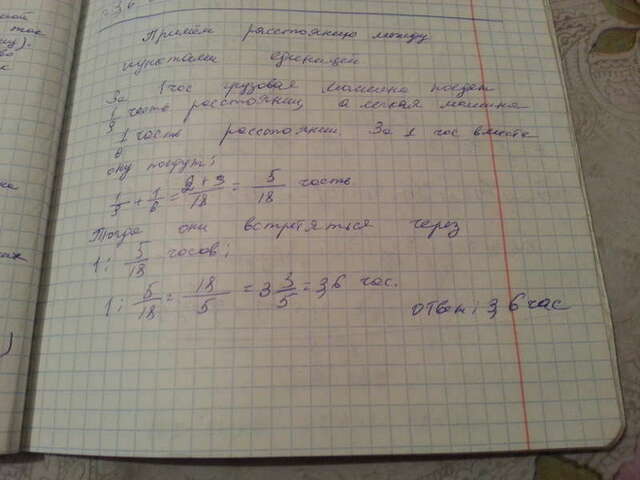 3,6
Примем расстоянию между
пунктами единицей
За 1 час грузовая машина поедет
1/9 часть расстояния, а легкая машина
1/6 часть расстояния. За 1 час вместе
ону поедут:
1/9 + 1/6 = 2+3/18 = 5/18 часть
Тогда они встретяться через
1 : 5/18 часов:
1 : 5/18 = 18/5 = 3 3/5 = 3,6 час.
ответ: 3,6 час